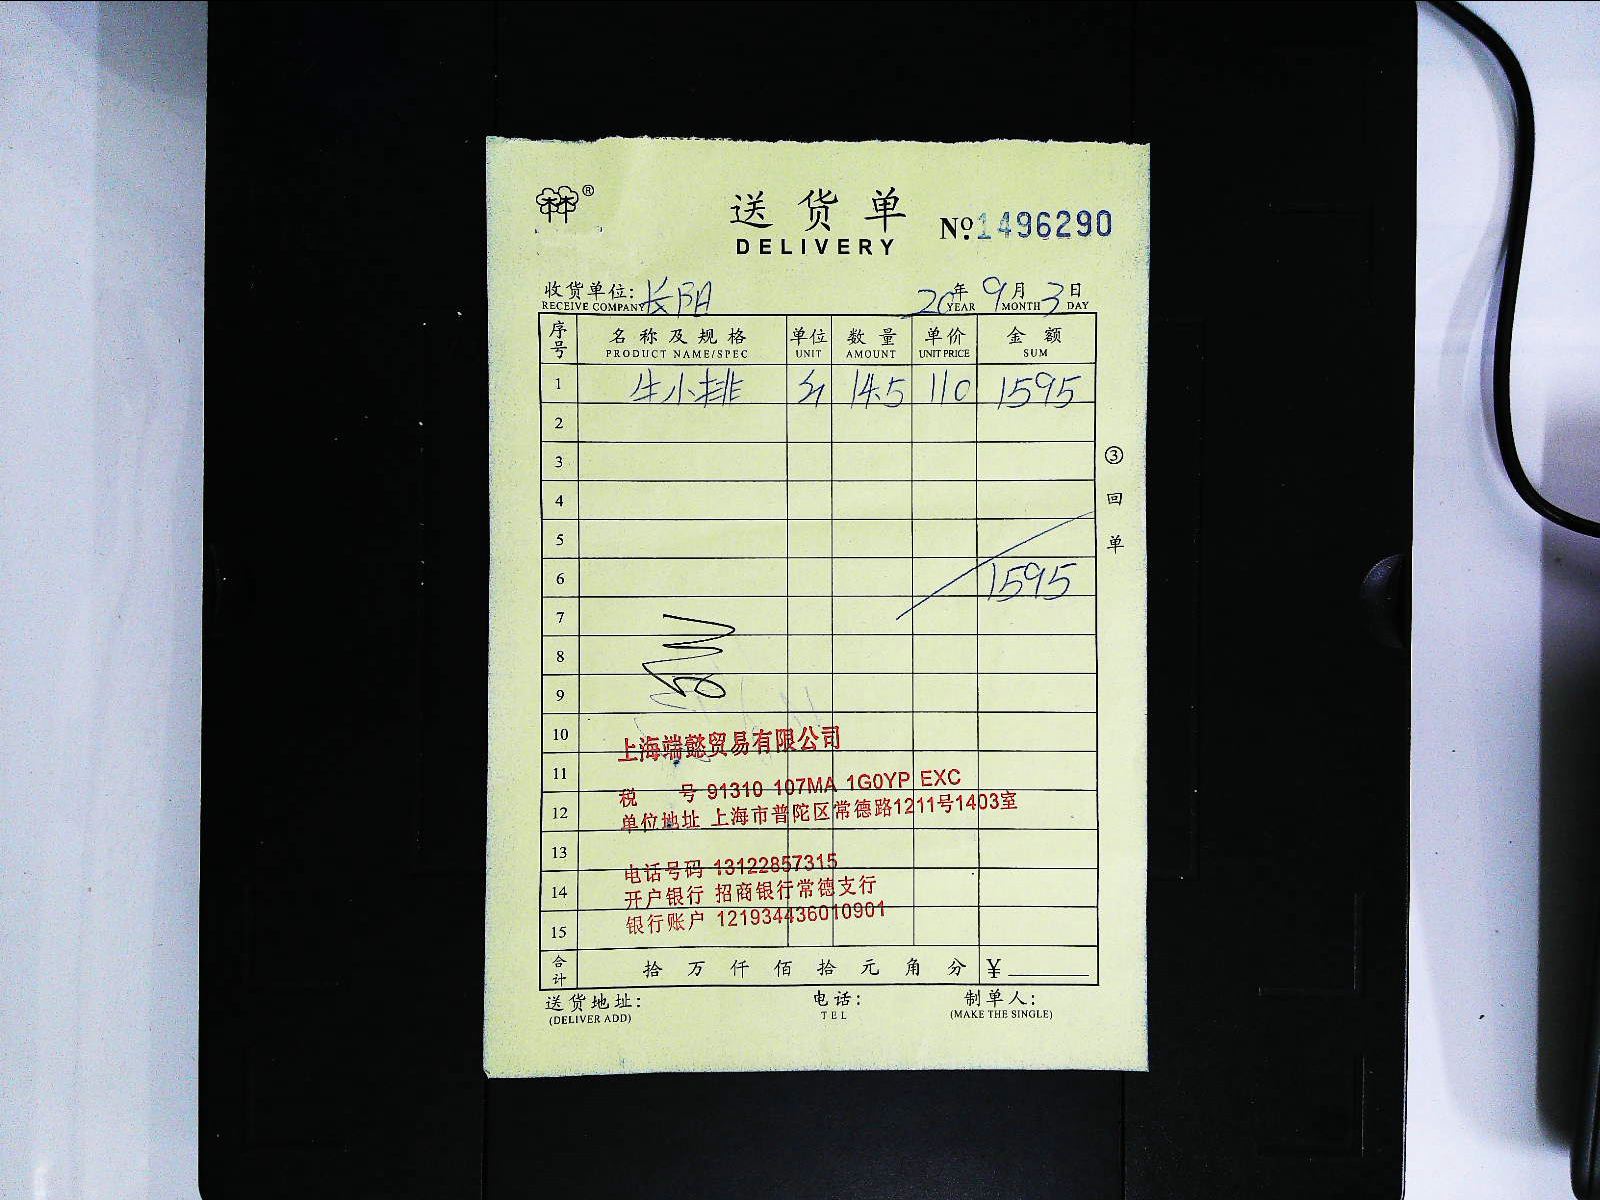 ®
送货单
DELIVERY
№.1496290
收货单位:长阳 20年9月3日
RECEIVE COMPANY YEAR MONTH DAY
序号 名称及规格 单位 数量 单价 金额
PRODUCT NAME/SPEC UNIT AMOUNT UNIT PRICE SUM
1 牛小排 14.5 110 1595
2
3
4
5
6 1595
7
8
9
10
11
12
13
14
15
③回单
上海端懿贸易有限公司
税 号 91310 107MA 1G0YP EXC
单位地址 上海市普陀区常德路1211号1403室
电话号码 13122857315
开户银行 招商银行常德支行
银行账户 121934436010901
合计 拾 万 仟 佰 拾 元 角 分 ¥
送货地址: 电话: 制单人:
(DELIVER ADD) TEL (MAKE THE SINGLE)